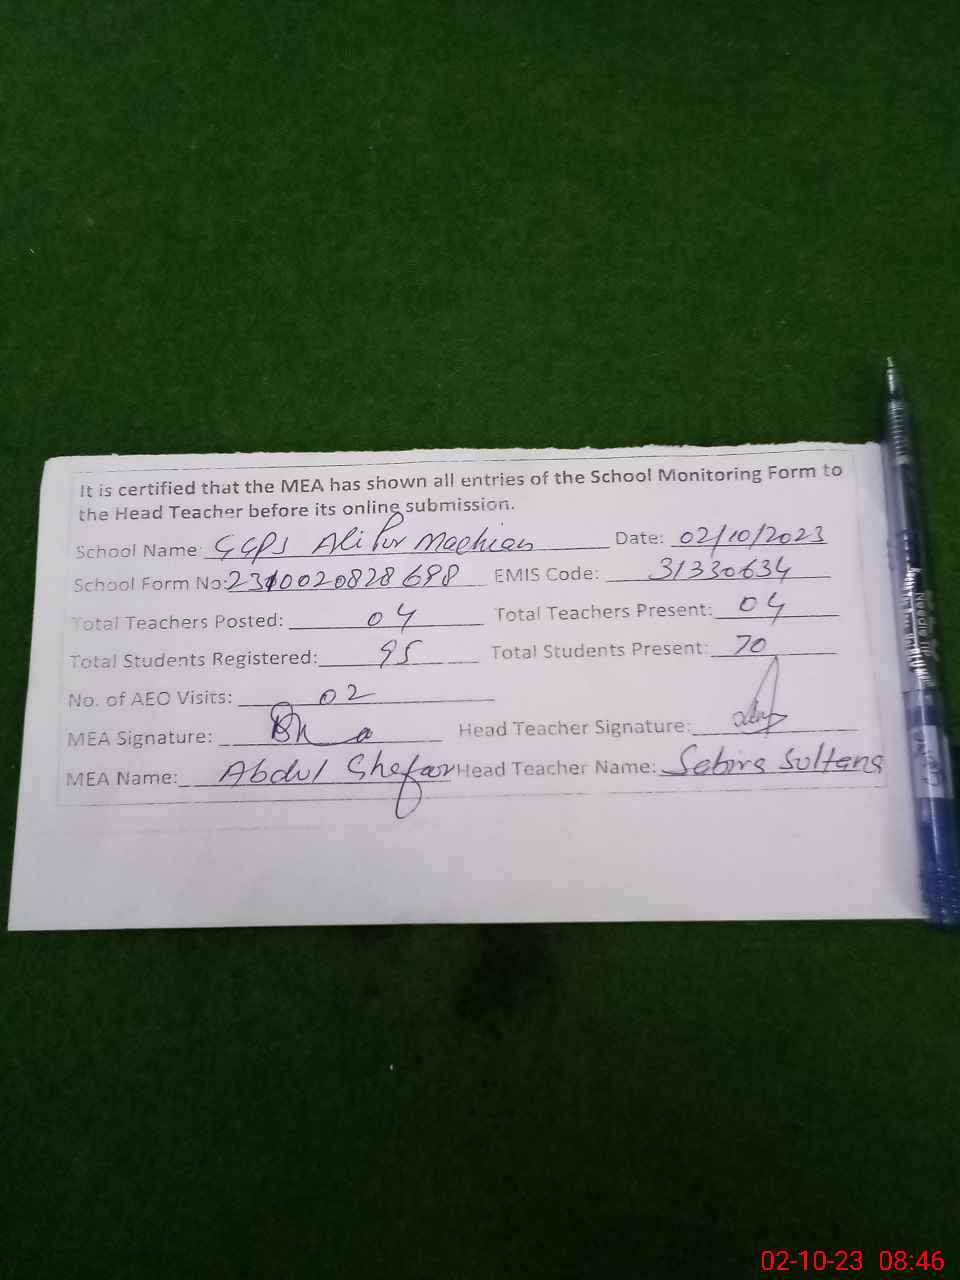 It is certified that the MEA has shown all entries of the School Monitoring Form to
the Head Teacher before its online submission.
School Name: GGPS Ali Pur Machian Date: 02/10/2023
School Form No: 2310020828698 EMIS Code: 31330634
Total Teachers Posted: 04 Total Teachers Present: 04
Total Students Registered: 95 Total Students Present: 70
No. of AEO Visits: 02
MEA Signature: Head Teacher Signature:
MEA Name: Abdul Ghafar Head Teacher Name: Sabira Sultana
02-10-23 08:46